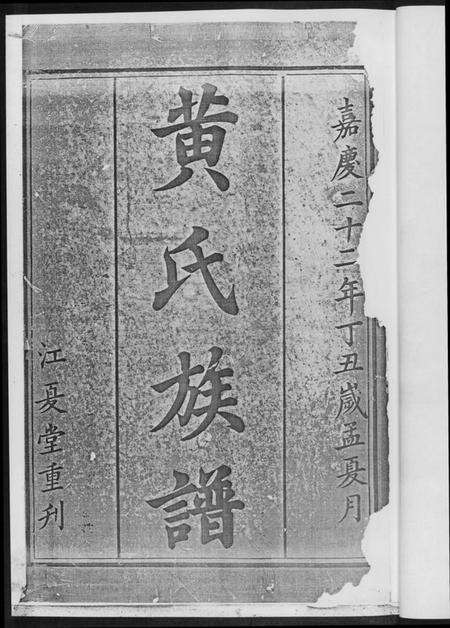 嘉慶二十二年丁丑歲孟夏月
黄氏族譜
江夏堂重刋